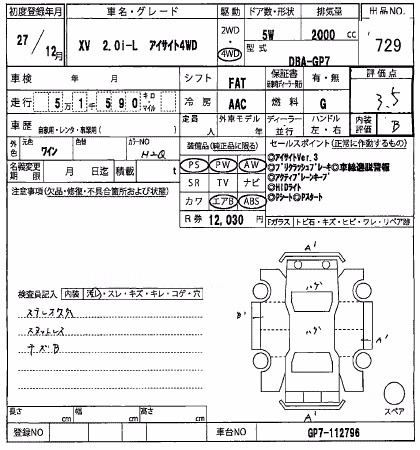 初度登録年月 車名・グレード 駆動 ドア数・形状 排気量 出品NO.
27/12月 XV 2.0i-L アイサイト4WD 2WD・4WD 5W 2000 cc 729
型式 DBA-GP7
車検 年 月 シフト FAT 保証書 有・無 評価点 3.5
走行 5万1千590 キロ・マイル 冷房 AAC 燃料 G
車歴 自家用・レンタ・事業用( ) 定員 人 外車モデル 年 ディーラー・並行 ハンドル 左・右 内装評価 B
外色 元色 ワイン 色替 カラーNO H2Q 装備品(純正品に限る) セールスポイント(正常に作動するもの)
名義変更期限 月 日迄 積載 t PS PW AW
SR TV ナビ
カワ エアB ABS
◎アイサイトVer.3
◎プリクラッシュブレーキ◎車線逸脱警報
◎アクティブレーンキープ
◎HIDライト
◎Pシート◎Pスタート
注意事項(欠品・修復・不具合箇所および状態)
R券 12,030 円 Fガラス トビ石・キズ・ヒビ・ワレ・リペア跡
検査員記入 内装 汚レ・スレ・キズ・キレ・コゲ・穴
キズB
A' ハゲ B' ハゲ A' ハゲ A' スペア
長さ cm 幅 cm 高さ cm
登録NO 車台NO GP7-112796